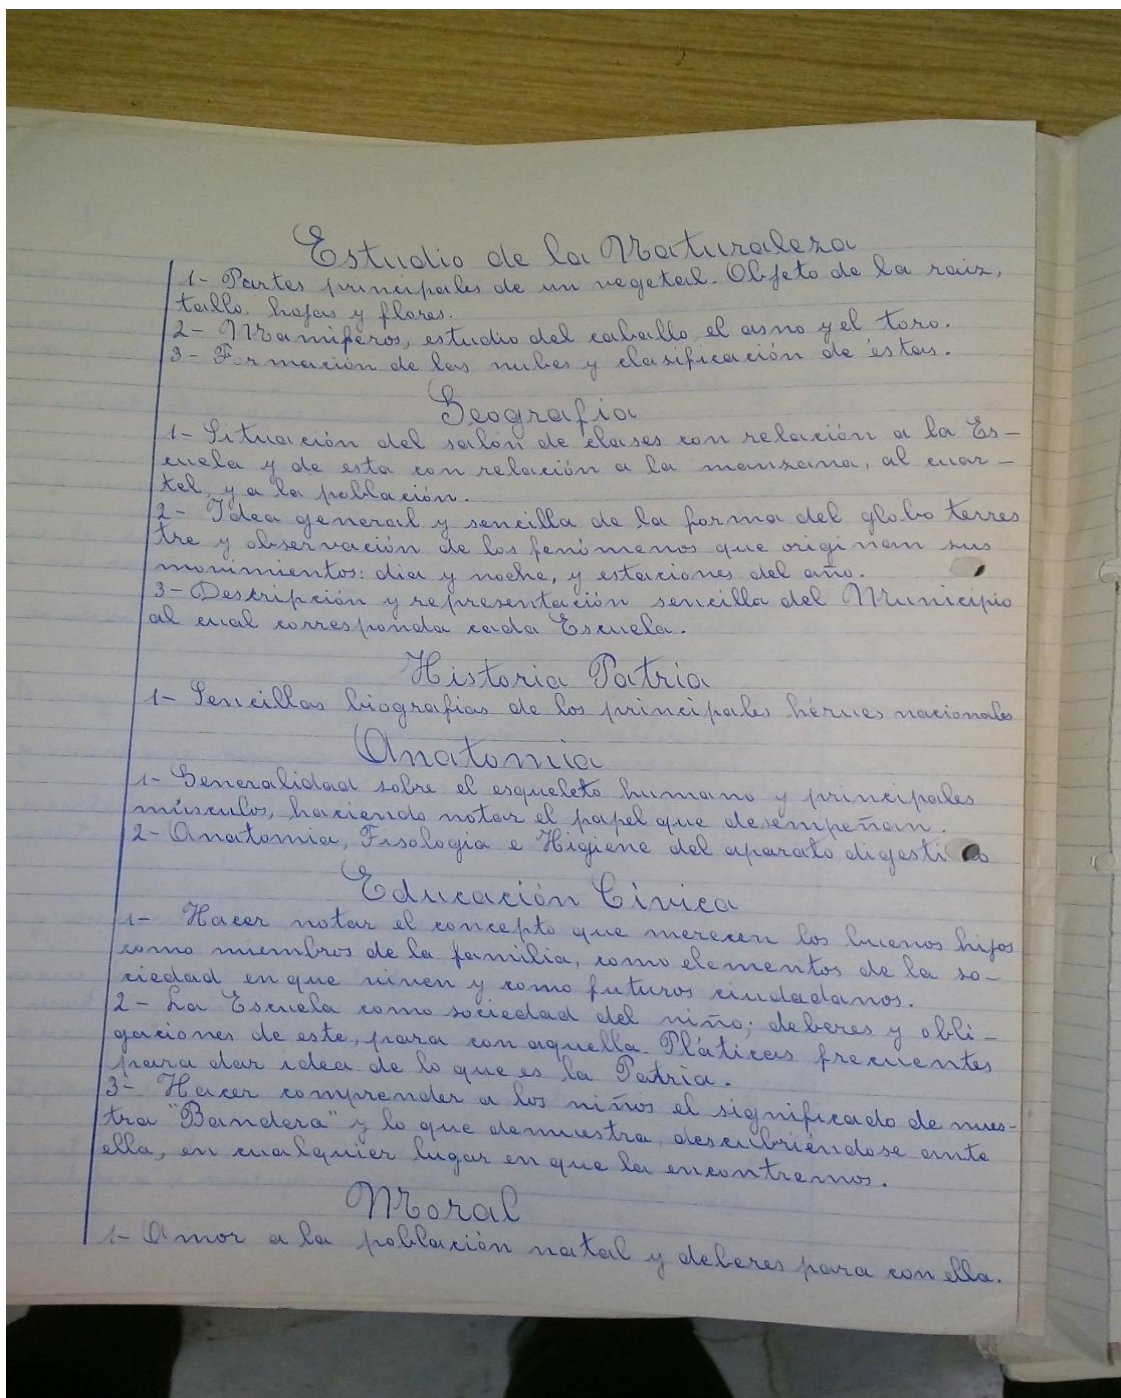 Estudio de la Naturaleza
1- Partes principales de un vegetal. Objeto de la raiz,
tallo, hojas y flores.
2- Mamiferos, estudio del caballo, el asno y el toro.
3- Formación de las nubes y clasificación de éstas.
Geografia
1- Situación del salón de clases con relación a la Es-
cuela y de esta con relación a la manzana, al cuar-
tel, y a la población.
2- Idea general y sencilla de la forma del globo terres
tre y observación de los fenómenos que originan sus
movimientos: dia y noche, y estaciones del año.
3- Descripción y representación sencilla del Municipio
al cual corresponda cada Escuela.
Historia Patria
1- Sencillas biografias de los principales héroes nacionales
Anatomia
1- Generalidad sobre el esqueleto humano y principales
músculos, haciendo notar el papel que desempeñan.
2- Anatomia, Fisologia e Higiene del aparato digestivo
Educación Civica
1- Hacer notar el concepto que merecen los buenos hijos
como miembros de la familia, como elementos de la so-
ciedad en que viven y como futuros ciudadanos.
2- La Escuela como sociedad del niño; deberes y obli-
gaciones de este, para con aquella. Pláticas frecuentes
para dar idea de lo que es la Patria.
3- Hacer comprender a los niños el significado de nues-
tra "Bandera" y lo que demuestra, descubriéndose ante
ella, en cualquier lugar en que la encontremos.
Moral
1- Amor a la población natal y deberes para con ella.